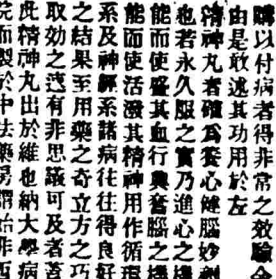 購以付病者得非常之效驗
由是敢述其功用於左
精神丸者確爲養心健腦妙劑
也若永久服之實乃進心之機
能而使盛其血行興奮腦之機
能而使活潑其精神用作循環
系及神經系諸病往往得良好
之結果至用藥之奇立方之巧
取効之速有非思議可及者首
此精神丸出於維也納大學病
院而製於中法藥房謂始非西